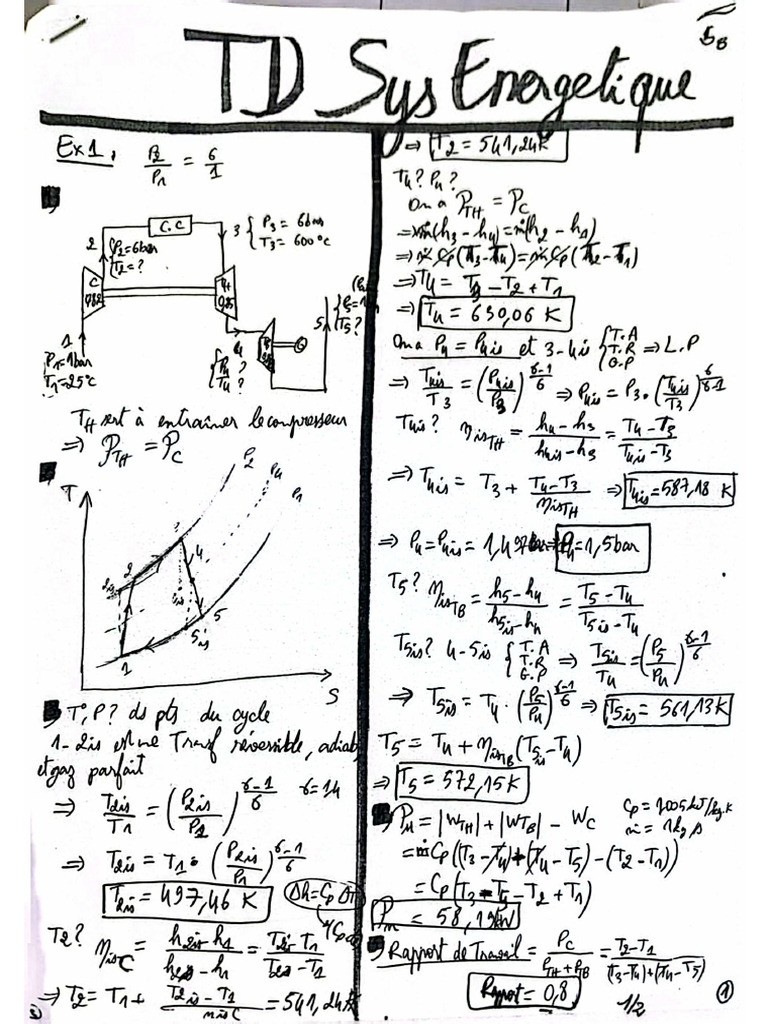 TD Sys Energetique
Ex1. P2/P1 = 6/1
C.C
2 { P2=6bar
T2=?
3 { P3 = 6bar
T3 = 600°C
C
0,82
TH
0,85
1
P1=1bar
T1=25°C
4
{ P4 ?
T4 ?
5
T5?
TH sert à entraîner le compresseur
⇒ PTH = PC
T
P2
P4
P1
2is
2
3
4
4is
5is
5
1
S
T°, P? ds pts du cycle
1-2is est une Transf réversible, adiab
et gaz parfait
⇒ T2is/T1 = (P2is/P1)^(γ-1/γ) γ=1,4
⇒ T2is = T1 · (P2is/P1)^(γ-1/γ)
T2is = 497,46 K
Δh=Cp ΔT
T2? ηisC = (h2is-h1)/(h2-h1) = (T2is-T1)/(T2-T1)
⇒ T2 = T1 + (T2is-T1)/ηisC = 541,24K
⇒ T2 = 541,24K
T4? P4?
On a PTH = PC
⇒ ṁ(h3-h4)=ṁ(h2-h1)
⇒ ṁ Cp(T3-T4)=ṁ Cp(T2-T1)
⇒ T4 = T3 - T2 + T1
⇒ T4 = 630,06 K
On a P4 = P4is et 3-4is { T.A
T.R
G.P ⇒ L.P
⇒ T4is/T3 = (P4is/P3)^(γ-1/γ) ⇒ P4is = P3·(T4is/T3)^(γ/γ-1)
T4is? ηisTH = (h4-h3)/(h4is-h3) = (T4-T3)/(T4is-T3)
⇒ T4is = T3 + (T4-T3)/ηisTH ⇒ T4is=587,18 K
⇒ P4=P4is = 1,497bar ⇒ P4=1,5bar
T5? ηisTB = (h5-h4)/(h5is-h4) = (T5-T4)/(T5is-T4)
T5is? 4-5is { T.A
T.R
G.P ⇒ T5is/T4 = (P5/P4)^(γ-1/γ)
⇒ T5is = T4 · (P5/P4)^(γ-1/γ) ⇒ T5is = 561,13K
T5 = T4 + ηisTB (T5is-T4)
⇒ T5 = 572,15K
Pu = |WTH| + |WTB| - WC
Cp = 1005 kJ/kg.K
ṁ = 1kg/s
= ṁ Cp((T3-T4)+(T4-T5)-(T2-T1))
= Cp(T3-T4-T2+T1)
= 58,19kW
Rapport de Travail = PC/(PTH+PTB) = (T2-T1)/((T3-T4)+(T4-T5))
Rapport = 0,8
1/2
1